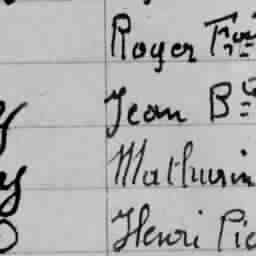 Roger Fois
Jean Bte
Mathurin
Henri Pie